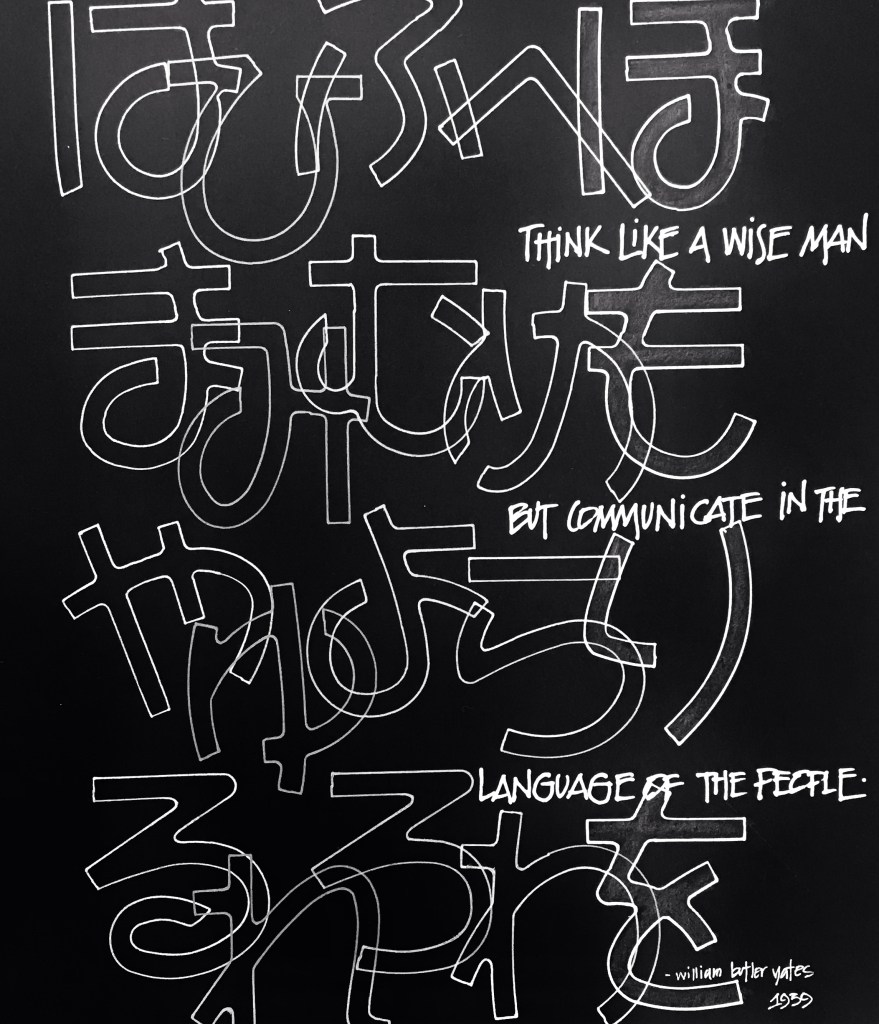 はひふへほ
THINK LIKE A WISE MAN
まみむめも
BUT COMMUNICATE IN THE
やゆよらり
LANGUAGE OF THE PEOPLE.
るれろわを
- william butler yates
1939